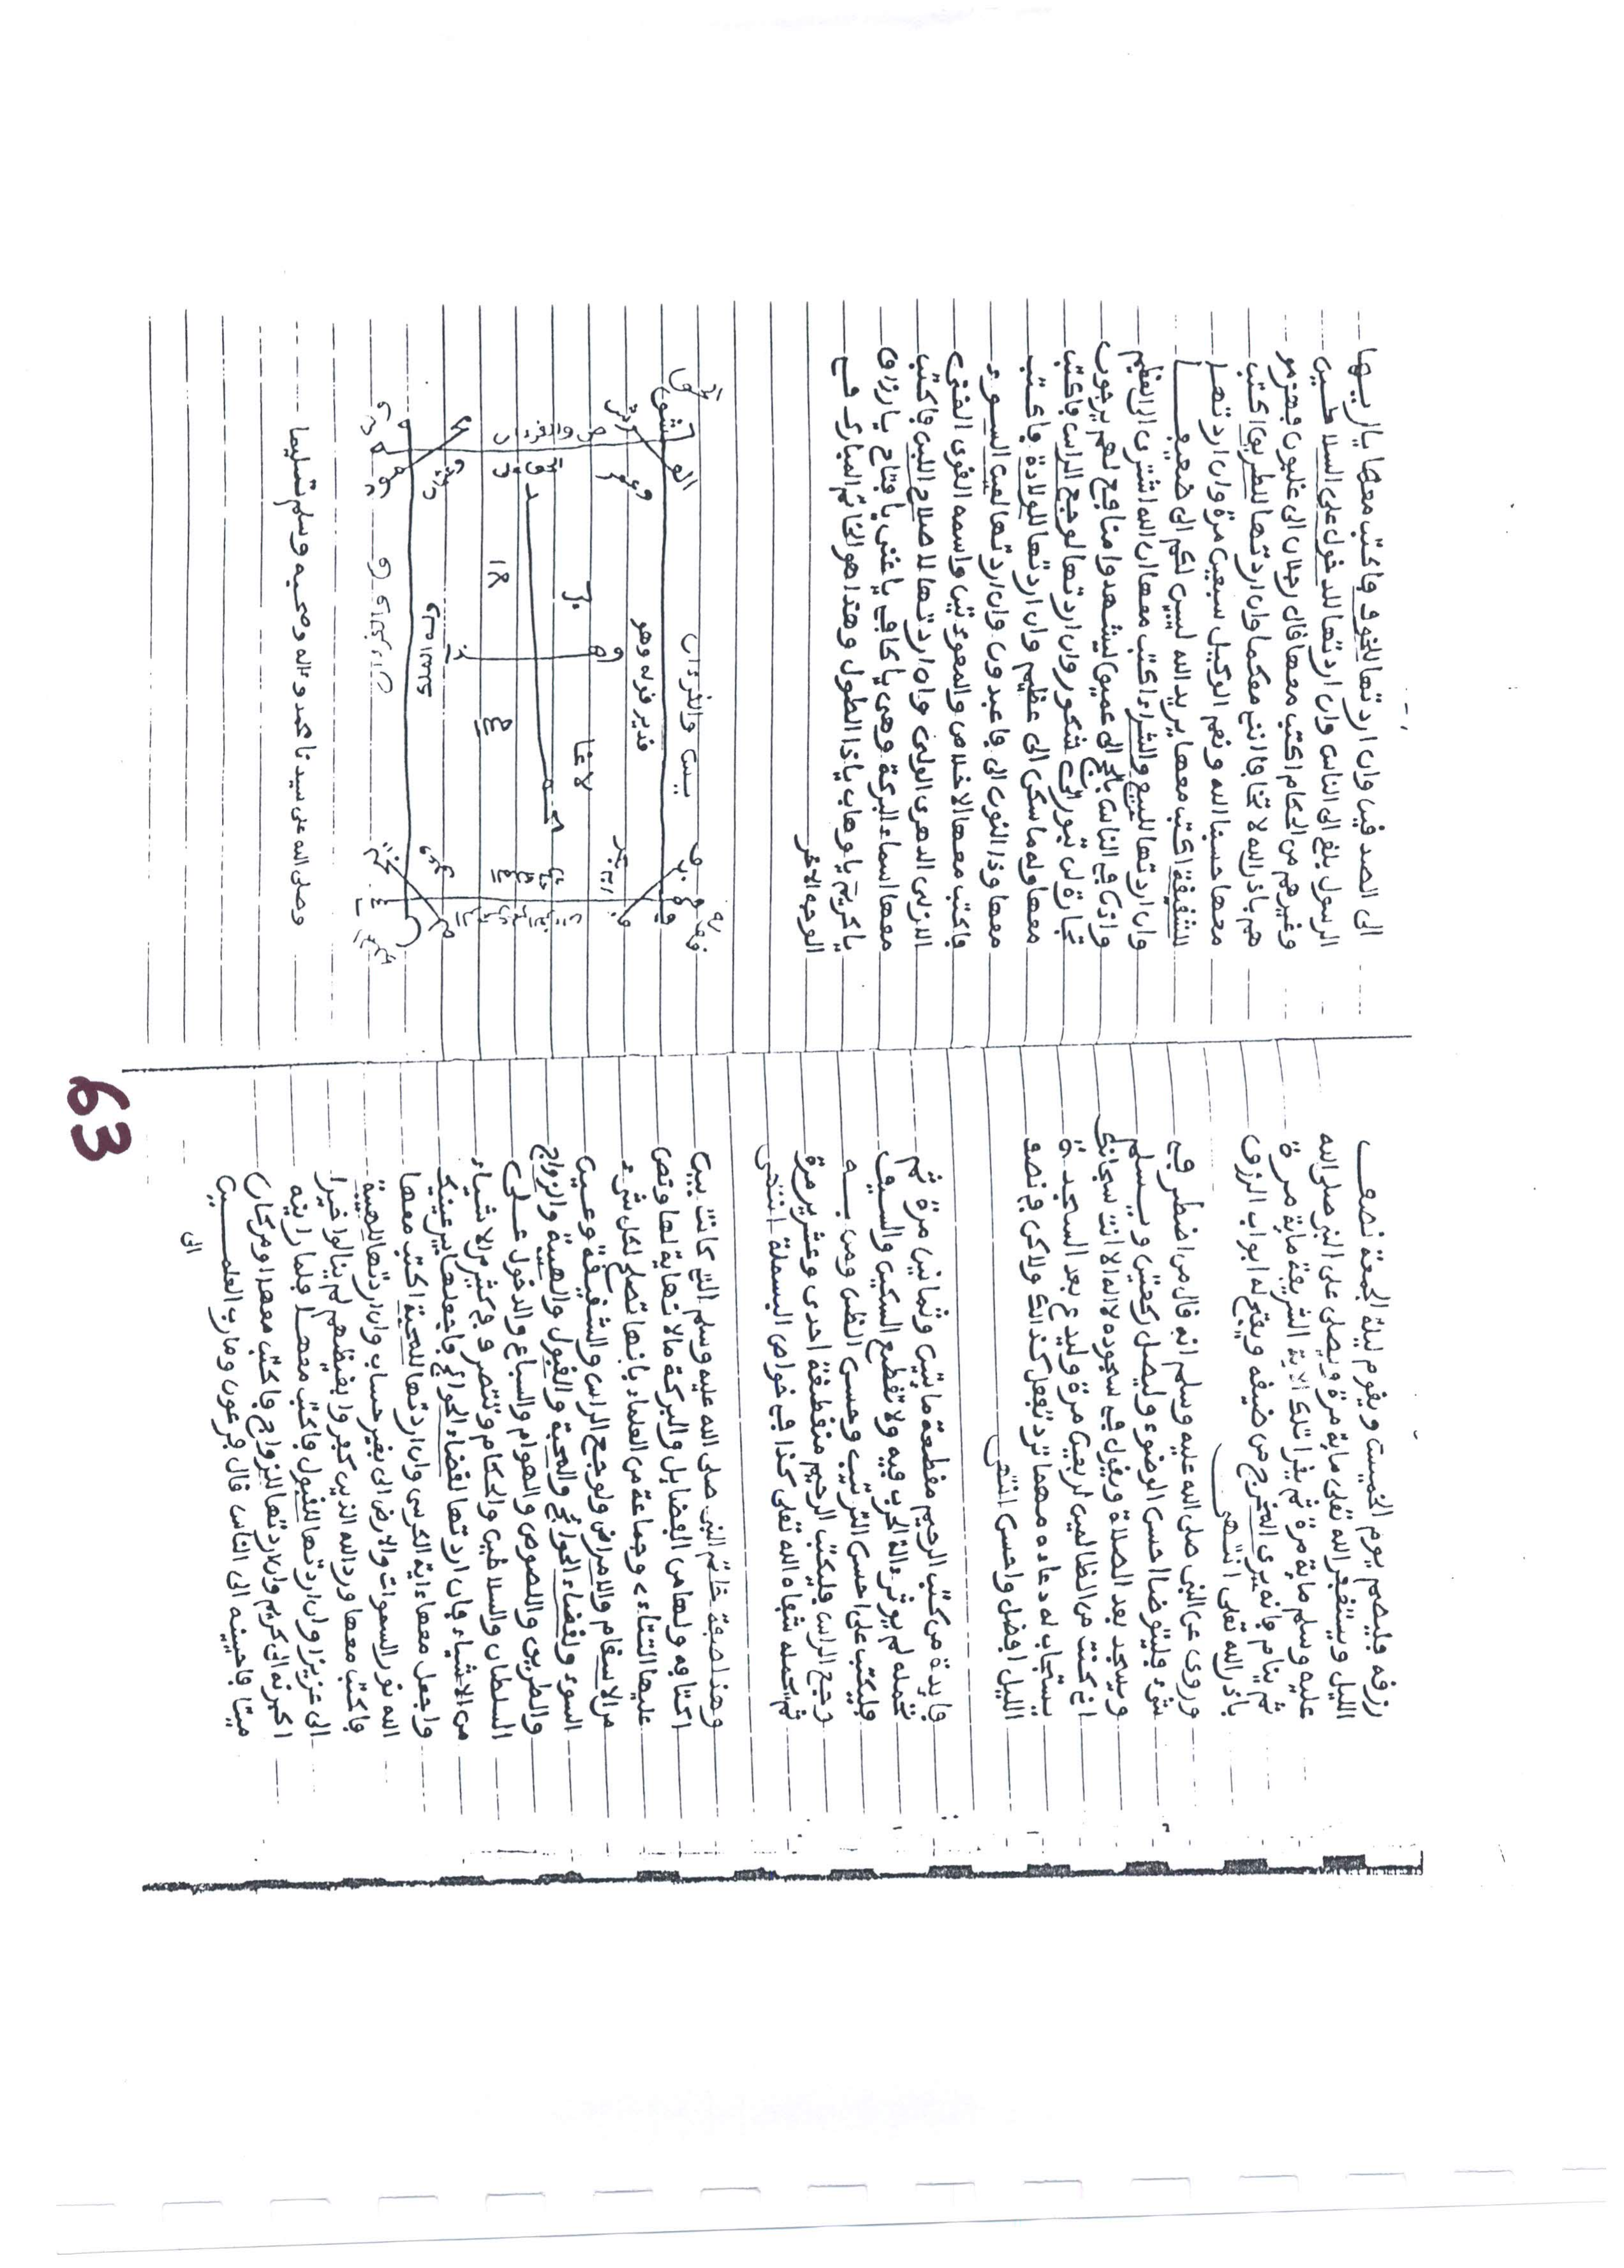 رزقه فليصم يوم الخميس ويقوم ليلة الجمعة نصف
الليل ويستغفر الله تعلى ماية مرة ويصلى على النبى صلى الله
عليه وسلم ماية مرة ثم يقرا تلك الاية الشريفة ماية مرة
ثم ينام فانه يرى المخرج من ضيفه ويفتح له ابواب الرزق
باذن الله تعلى انتهى
وروى عن النبى صلى الله عليه وسلم انه قال من اضطر فى
شىء فليتوضا احسن الوضوء وليصل ركعتين ويسلم
ويسجد بعد الصلاة ويقول فى سجوده لااله الا انت سبحانك
انى كنت من الظالمين اربعين مرة وليدع بعد السجدة
يستجاب له دعاءه مهما ترد تفعل كذالك ولاكن فى نصف
الليل افضل واحسن انتهى
فايدة من كتب الرحيم مقطعة مايتين وثمانين مرة ثم
يحمله لم يوثر ءالة الحرب فيه ولا تقطع السكين والسيف
فليكتب على احسن الترتيب وحسن الظن ومن به
وجع الراس فليكتب الرحيم منقطعة احدى وعشرين مرة
ثم يحمله شفاه الله تعلى كذا فى خواص البسملة انتهى
وهذا صفة خاتم النبى صلى الله عليه وسلم التى كانت بين
اكتافه ولها من الفضايل والبركة مالا نهاية لها ونص
عليها الثناء وجماعة من العلماء بانها تصلح لكل شىء
من الاسقام والامراض ولوجع الراس والشقيقة وعين
السوء ولقضاء الحوائج والمحبة والقبول والهيبة والزواج
والطريق واللصوص والهوام والسباع والدخول على
السلطان والسلاطين والحكام وتنتصر وفى كثير من الاشياء
من الاشياء فان اردتها لقضاء الحوائج فاجعلها بين عينيك
واجعل معها ءاية الكرسى وان اردتها للمحبة اكتب معها
الله نور السموات والارض الى بغير حساب وان اردتها للهيبة
فاكتب معها ورد الله الذين كفروا بغيظهم لم ينالوا خيرا
الى عزيزا وان اردتها للقبول فاكتب معها فلما راينه
اكبرنه الى كريم وان اردتها للزواج فاكتب معها اومن كان
ميتا فاحييناه الى الناس قال فرعون وما رب العلمين
الى
الى الصدفين وان اردتها للخوف فاكتب معها يا ايها
الرسول بلغ الى الناس وان اردتها للدخول على السلاطين
وغيرهم من الحكام اكتب معها قال رجلان الى غلبون فهزمو
هم باذن الله لا تخافا اننى معكما وان اردتها للطريق اكتب
معها حسبنا الله ونعم الوكيل سبعين مرة وان اردتها
للشقيقة اكتب معها يريد الله ليبين لكم الى ضعيفا
وان اردتها للبيع والشراء اكتب معها ان الله اشترى الى العظيم
واذن فى الناس بالحج الى عميق ليشهدوا منافع لهم يرجون
تجارة لن تبور الى شكور وان اردتها لوجع الراس فاكتب
معها وله ما سكن الى عظيم وان اردتها للولادة فاكتب
معها وذا النون الى فاعبدون وان اردتها لعين السوء
فاكتب معها الاخلاص والمعوذتين واسمه القوى الغنى
الازلى الدهرى الولى وان اردتها لاصلاح اللبن فاكتب
معها اسماء البركة وهى يا كافى يا غنى يا فتاح يا رزاق
يا كريم يا وهاب يا ذا الطول وهذا هو الخاتم المبارك فى
الوجه الاخر
يس والقرءان
قدير قوله وهو
ص والقرءان
وصلى الله على سيدنا محمد وءاله وصحبه وسلم تسليما
63